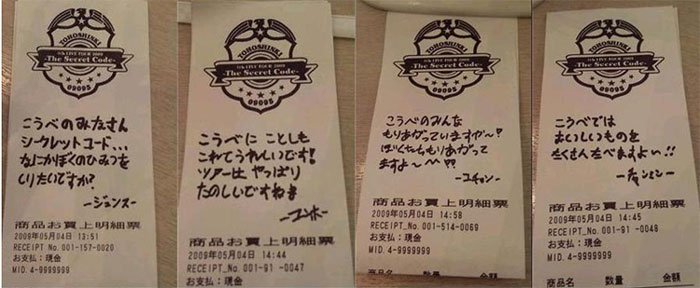 TOHOSHINKI
4th LIVE TOUR 2009
-The Secret Code-
09095
こうべのみなさん
シークレットコード...
なにかぼくのひみつを
しりたいですか?
-ジュンス-
商品お買上明細票
2009年05月04日 13:51
RECEIPT_No. 001-157-0020
お支払:現金
MID. 4-9999999
TOHOSHINKI
4th LIVE TOUR 2009
-The Secret Code-
09095
こうべに ことしも
これてうれしいです!
ツアーは やっぱり
たのしいですね
-ユンホ-
商品お買上明細票
2009年05月04日 14:44
RECEIPT_No. 001-91 -0047
お支払:現金
TOHOSHINKI
4th LIVE TOUR 2009
-The Secret Code-
09095
こうべのみんな
もりあがっていますか~?
ぼくたちもりあがって
ますよ~^^??
-ユチョン-
商品お買上明細票
2009年05月04日 14:58
RECEIPT_No. 001-514-0069
お支払:現金
MID. 4-9999999
商品名 数量 金額
TOHOSHINKI
4th LIVE TOUR 2009
-The Secret Code-
09095
こうべでは
おいしいものを
たくさんたべますよ~!!
-チャンミン-
商品お買上明細票
2009年05月04日 14:45
RECEIPT_No. 001-91 -0048
お支払:現金
MID. 4-9999999
商品名 数量 金額